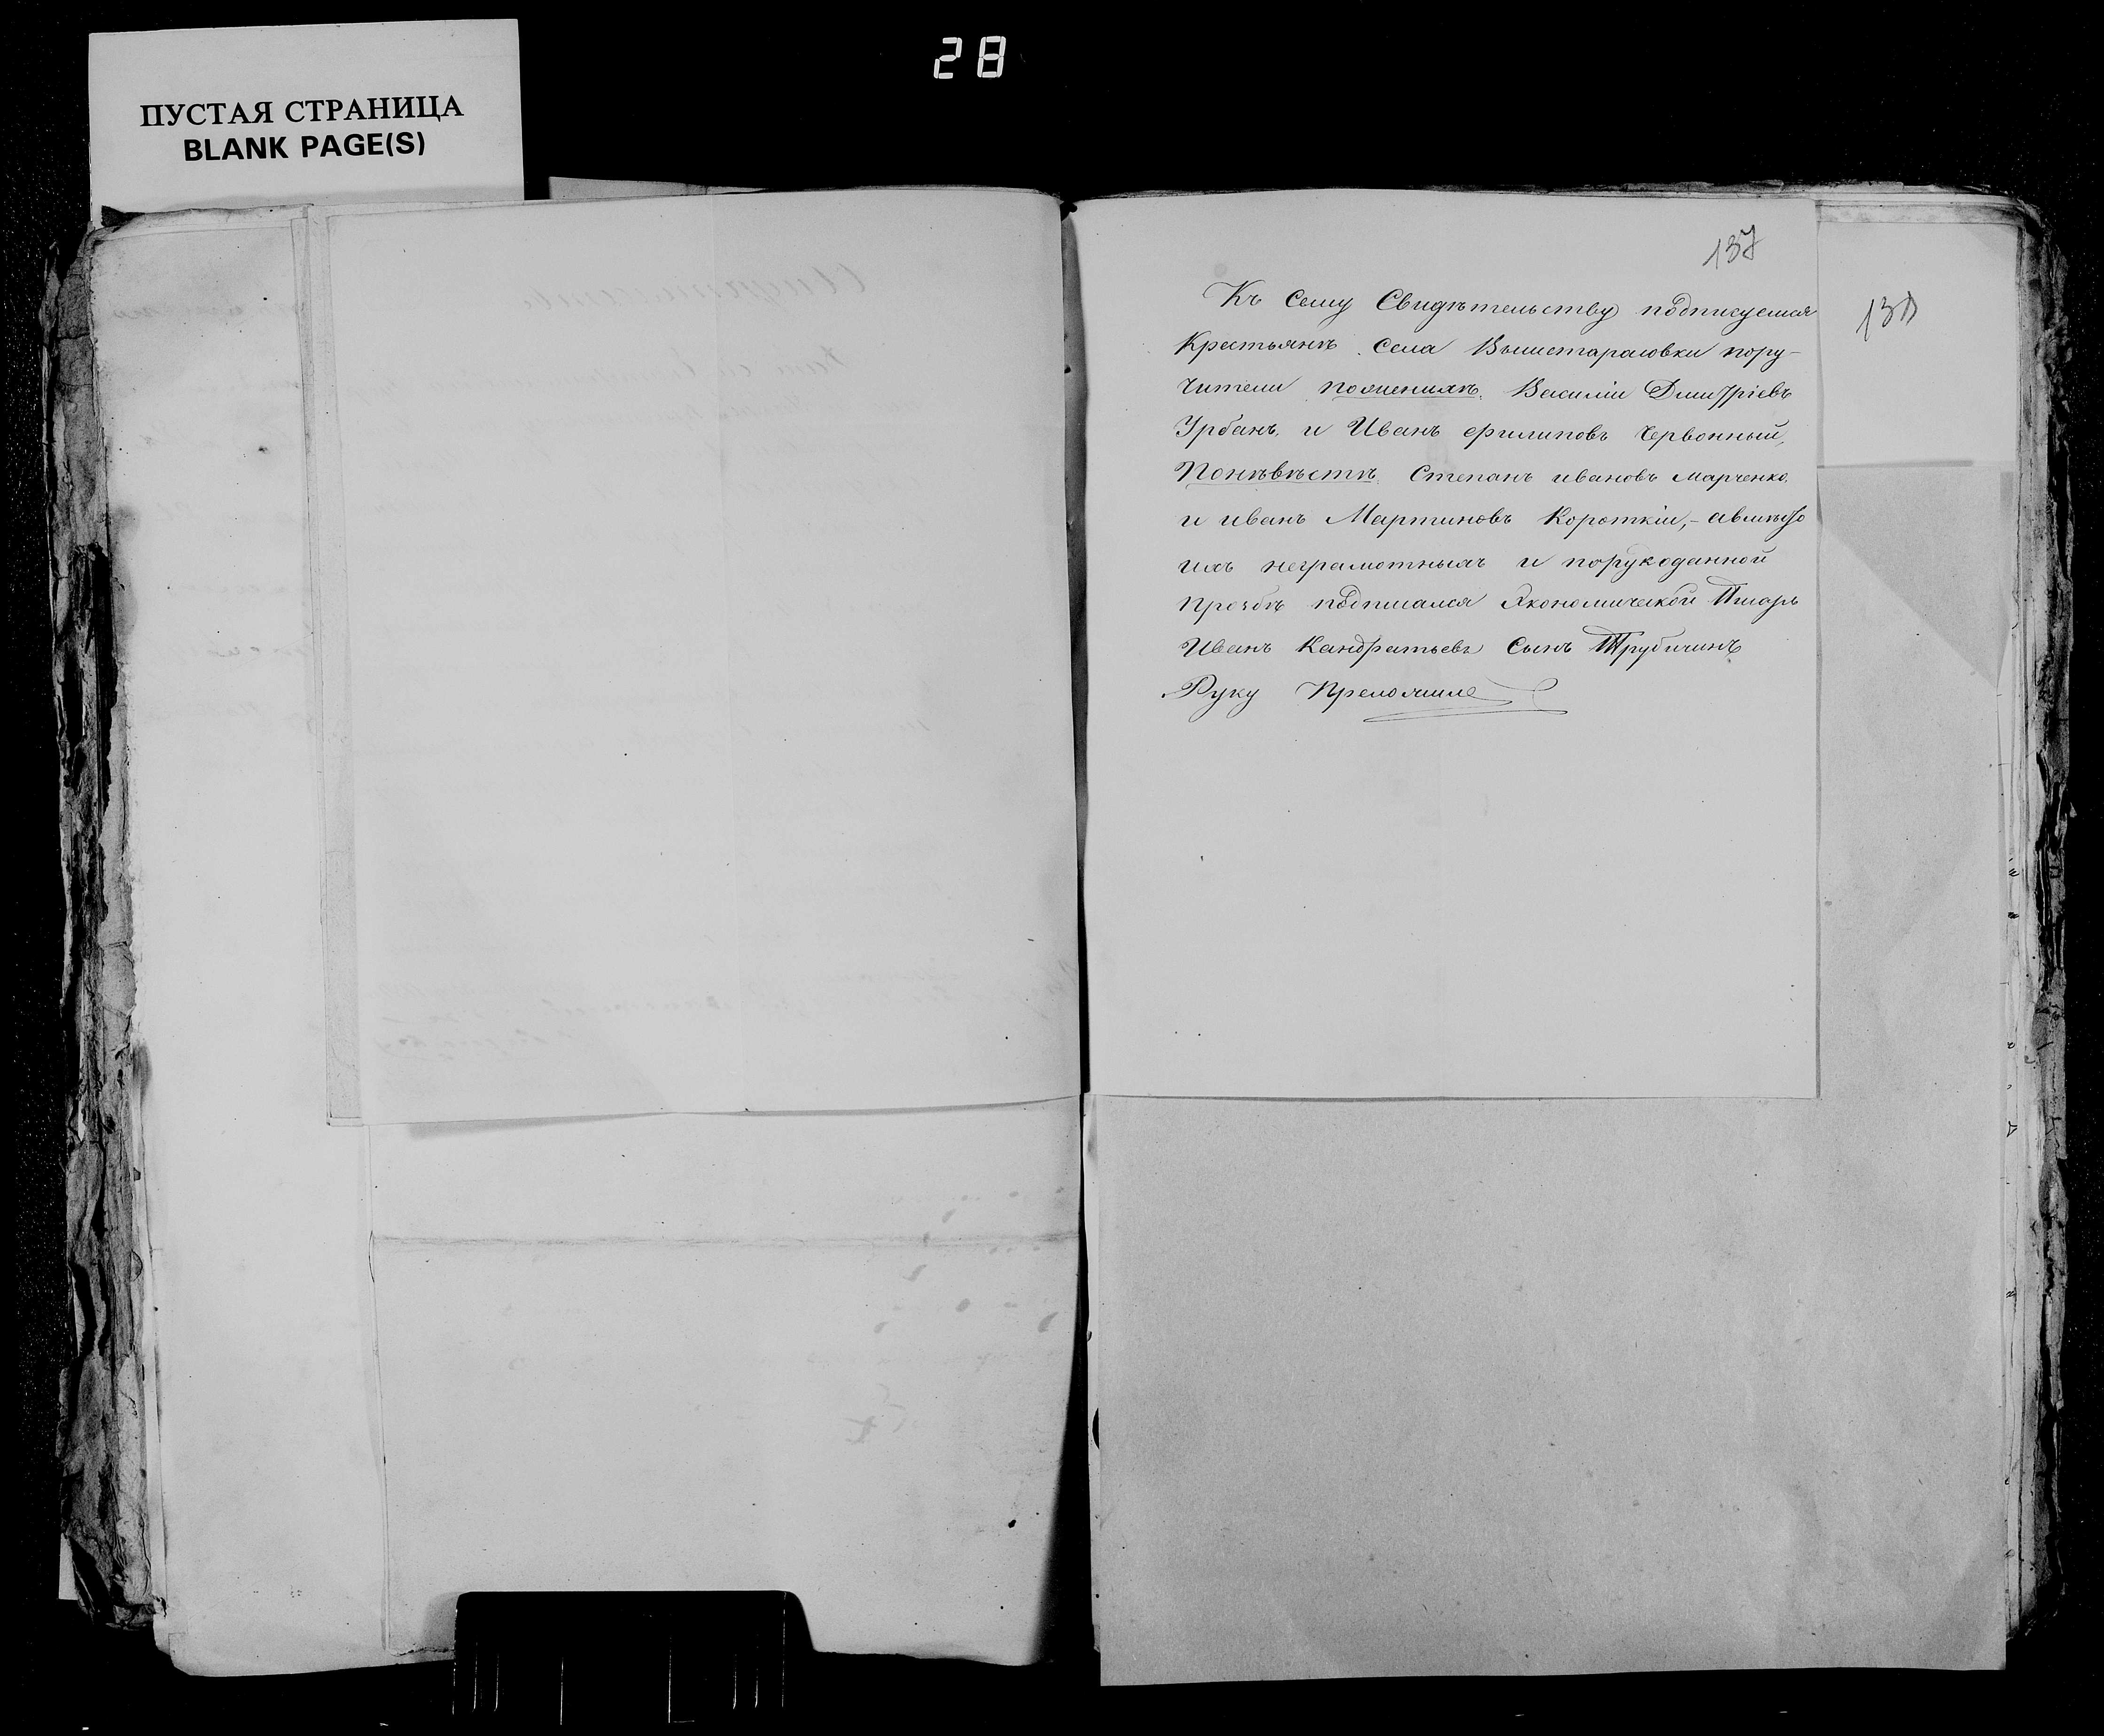 28
ПУСТАЯ СТРАНИЦА
BLANK PAGE(S)
137
Къ сему Свидѣтельству подписуемся
Крестьянѣ Села Вышетарасовки пору-
чители поженихѣ, Василій Дмитріевъ
Урбанъ, и Иванъ филиповъ Червонный,
Понѣвѣстѣ, Степанъ ивановъ Марченко,
и иванъ Мартиновъ Короткій,- авмѣсто
ихъ неграмотныхъ и порукоданной
прозбѣ подписался Экономической Писарь
Иванъ Кандратьевъ Сынъ Трубичинъ
Руку Преложиле